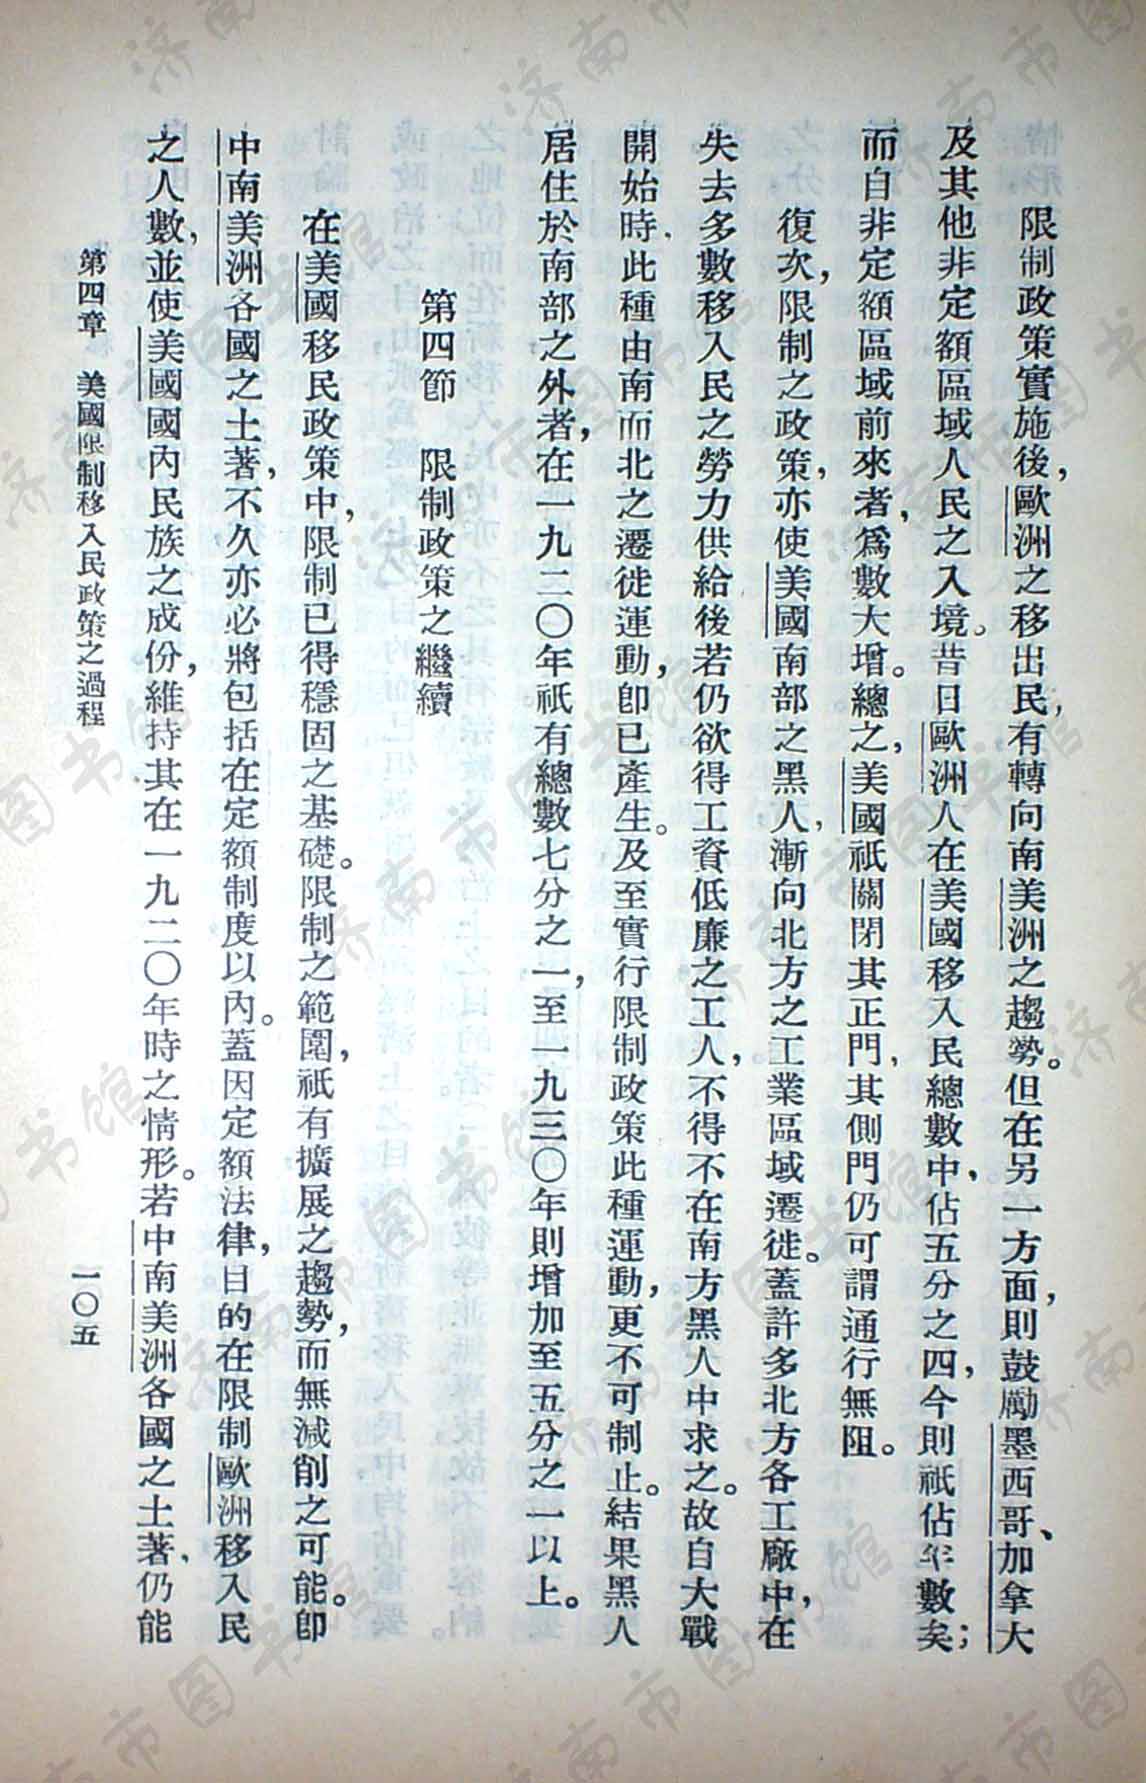 限制政策實施後，歐洲之移出民，有轉向南美洲之趨勢。但在另一方面，則鼓勵墨西哥、加拿大
及其他非定額區域人民之入境。昔日歐洲人在美國移入民總數中，佔五分之四，今則祇佔半數矣；
而自非定額區域前來者，爲數大增。總之，美國祇關閉其正門，其側門仍可謂通行無阻。
復次，限制之政策，亦使美國南部之黑人，漸向北方之工業區域遷徙。蓋許多北方各工廠中，在
失去多數移入民之勞力供給後若仍欲得工資低廉之工人，不得不在南方黑人中求之。故自大戰
開始時，此種由南而北之遷徙運動，卽已產生。及至實行限制政策此種運動，更不可制止。結果黑人
居住於南部之外者，在一九二〇年祇有總數七分之一，至一九三〇年則增加至五分之一以上。
第四節　限制政策之繼續
在美國移民政策中，限制已得穩固之基礎。限制之範圍，祇有擴展之趨勢，而無減削之可能。卽
中南美洲各國之土著，不久亦必將包括在定額制度以內。蓋因定額法律，目的在限制歐洲移入民
之人數，並使美國國內民族之成份，維持其在一九二〇年時之情形。若中南美洲各國之土著，仍能
第四章　美國限制移入民政策之過程　一〇五
济南市图书馆